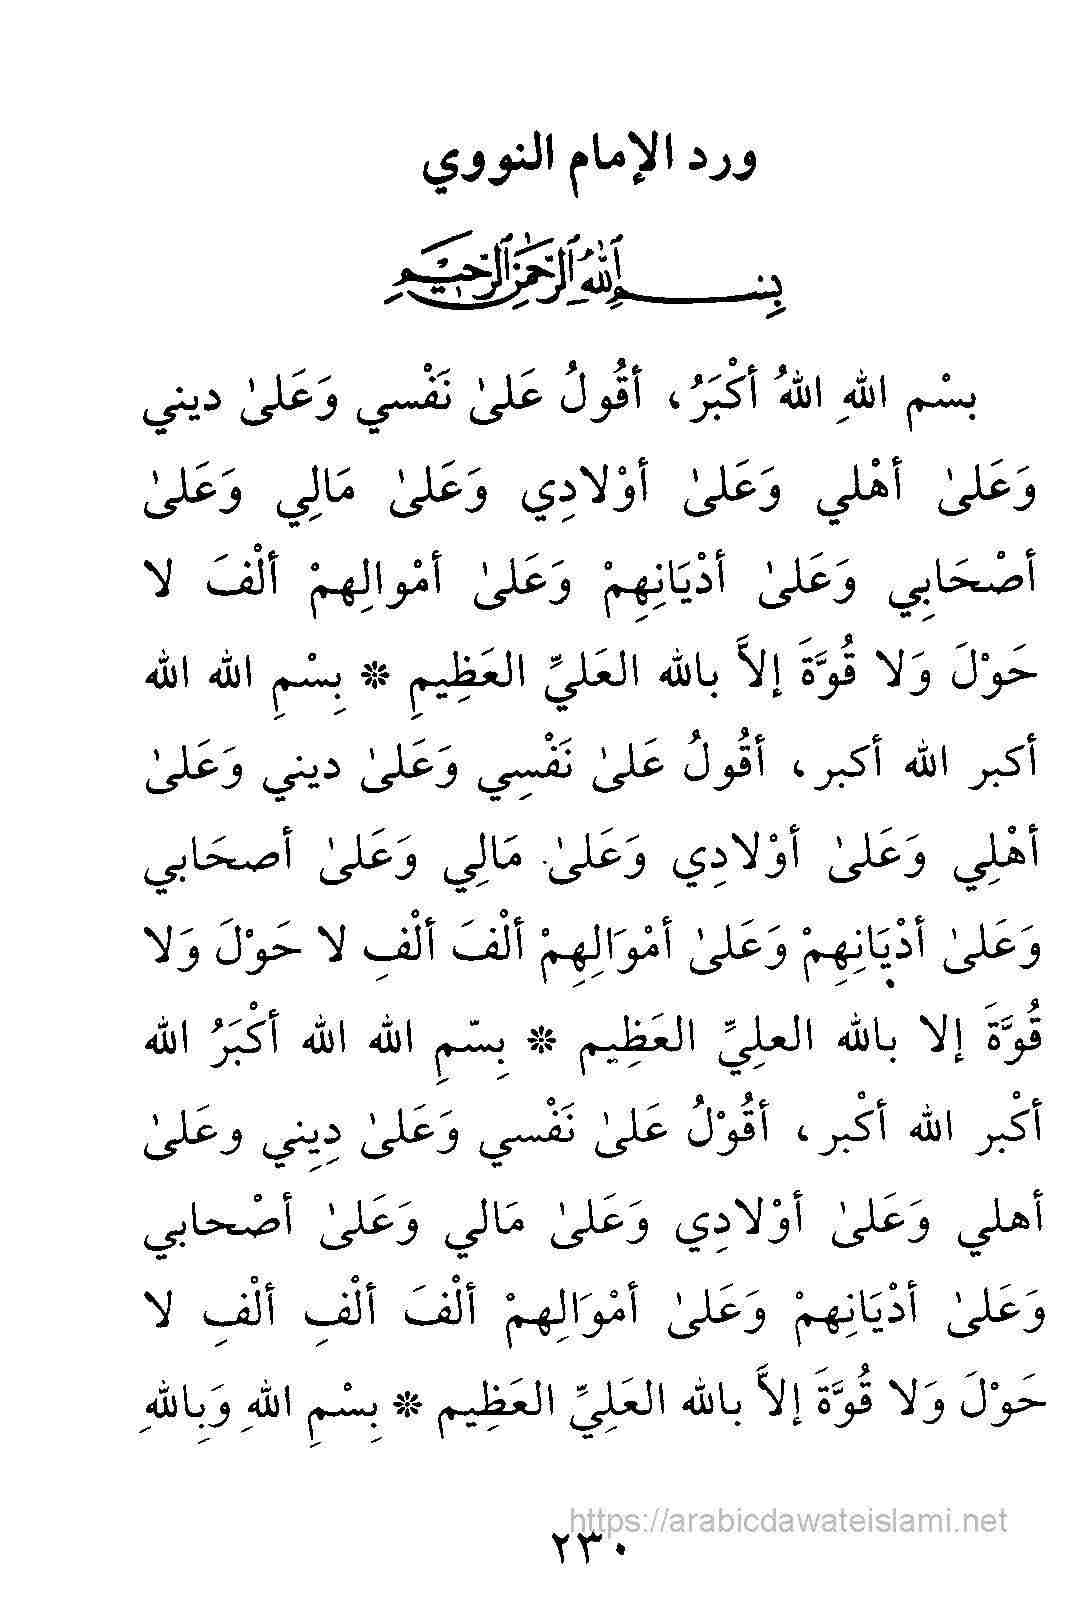 ورد الإمام النووي
بِسْمِ اللهِ الرَّحْمٰنِ الرَّحِيمِ
بسْم اللهِ اللهُ أكْبَرُ، أقُولُ عَلىٰ نَفْسي وَعَلىٰ ديني
وَعَلىٰ أهْلي وَعَلىٰ أوْلادِي وَعَلىٰ مَالِي وَعَلىٰ
أصْحَابِي وَعَلىٰ أدْيَانِهِمْ وَعَلىٰ أمْوالِهمْ ألْفَ لا
حَوْلَ وَلا قُوَّةَ إلاَّ بالله العَليِّ العَظِيمِ ❊ بِسْمِ الله الله
أكبر الله أكبر، أقُولُ عَلىٰ نَفْسِي وَعَلىٰ ديني وَعَلىٰ
أهْلِي وَعَلىٰ أوْلادِي وَعَلىٰ مَالِي وَعَلىٰ أصحَابي
وَعَلىٰ أدْيَانِهِمْ وَعَلىٰ أمْوَالِهِمْ ألْفَ ألْفِ لا حَوْلَ وَلا
قُوَّةَ إلا بالله العلِيِّ العَظِيم ❊ بِسّمِ الله الله أكْبَرُ الله
أكْبر الله أكْبر، أقُوْلُ عَلىٰ نَفْسي وَعَلىٰ دِيِني وعَلىٰ
أهلي وَعَلىٰ أوْلادِي وَعَلىٰ مَالي وَعَلىٰ أصْحابي
وَعَلىٰ أدْيَانِهمْ وَعَلىٰ أمْوَالِهمْ ألْفَ ألْفِ ألْفِ لا
حَوْلَ وَلا قُوَّةَ إلاَّ بالله العَلِيِّ العَظِيم ❊ بِسْمِ اللهِ وَبِاللهِ
https://arabicdawateislami.net
٢٣٠